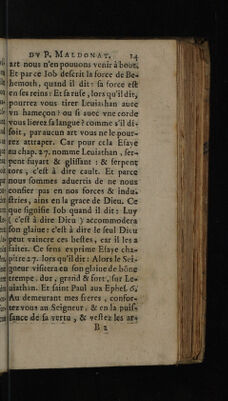 DV P. MALDONAT. 14
art nous n'en pouuons venir à bout.
Et parce Iob descrit la force de Be-
hemoth, quand il dit: sa force est
en ses reins: Et sa ruse, lors qu'il dit,
pourrez vous tirer Leuiathan auec
vn hameçon? ou si auec vne corde
vous lierez sa langue? comme s'il di-
soit, par aucun art vous ne le pour-
rez attraper. Car pour cela Esaye
au chap. 27. nomme Leuiathan, ser-
pent fuyart & glissant: & serpent
tors, c'est à dire cault. Et parce
nous sommes aduertis de ne nous
confier pas en nos forces & indu-
stries, ains en la grace de Dieu. Ce
que signifie Iob quand il dit: Luy
(c'est à dire Dieu) accommodera
son glaiue: c'est à dire le seul Dieu
peut vaincre ces bestes, car il les a
faites. Ce sens exprime Esaye cha-
pitre 27. lors qu'il dit: Alors le Sei-
gneur visitera en son glaiue de bōne
trempe, dur, grand & fort, sur Le-
uiathan. Et sainct Paul aux Ephes. 6.
Au demeurant mes freres, confor-
tez vous au Seigneur, & en la puis-
sance de sa vertu, & vestez les ar-
B 2